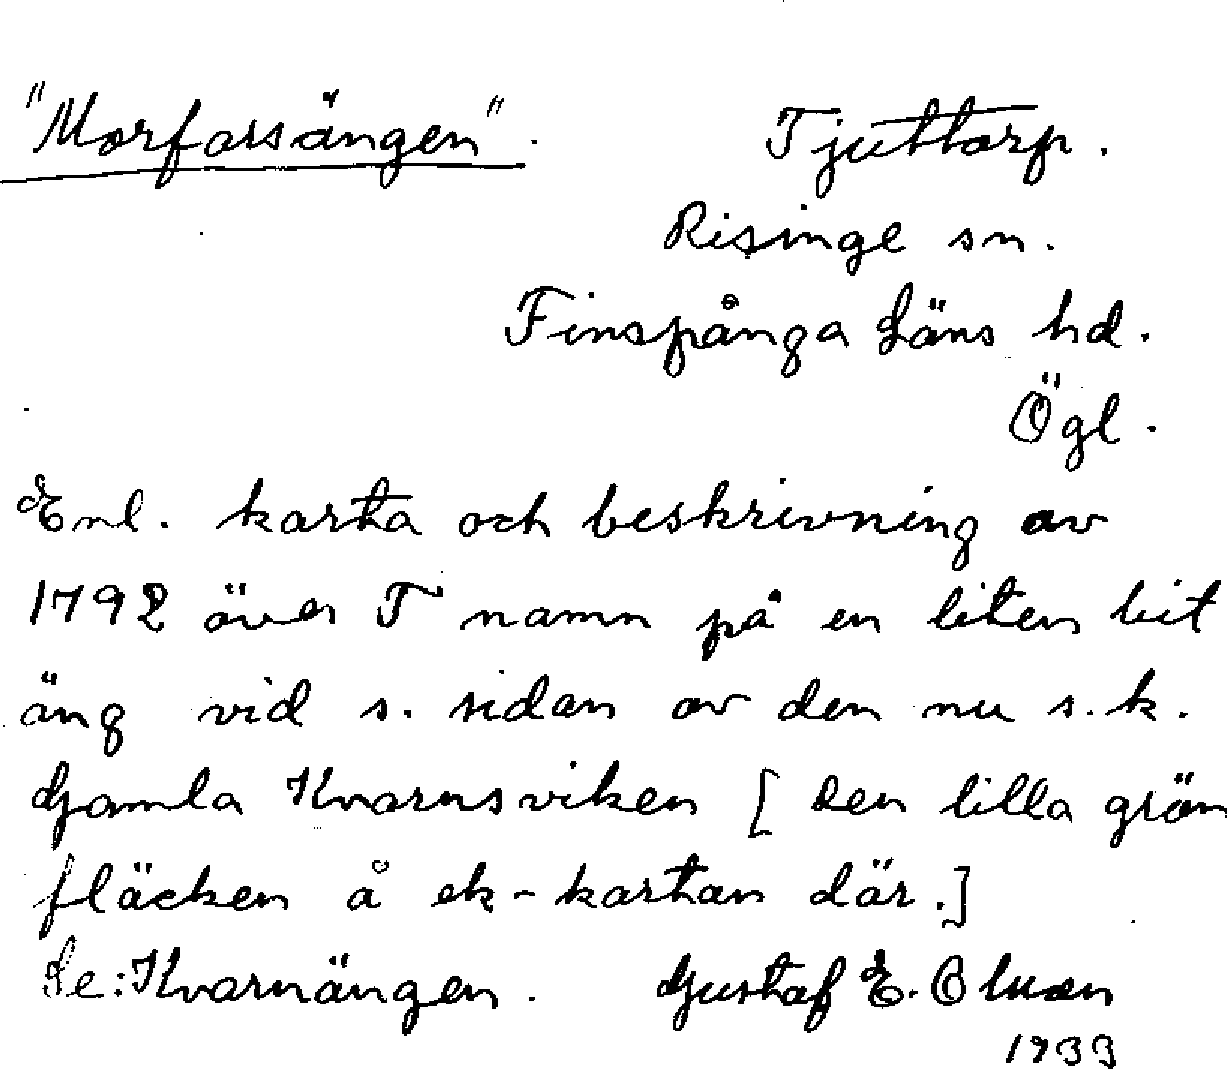 "Morfarsängen". Tjuttorp.
Risinge sn.
Finspånga Läns hd.
Ögl.
Enl. karta och beskrivning av
1792 över T namn på en liten bit
äng vid s. sidan av den nu s.k.
Gamla Kvarnsviken [Den lilla grön
fläcken å ek-kartan där.]
Se: Kvarnängen. Gustaf E. Olsson
1933